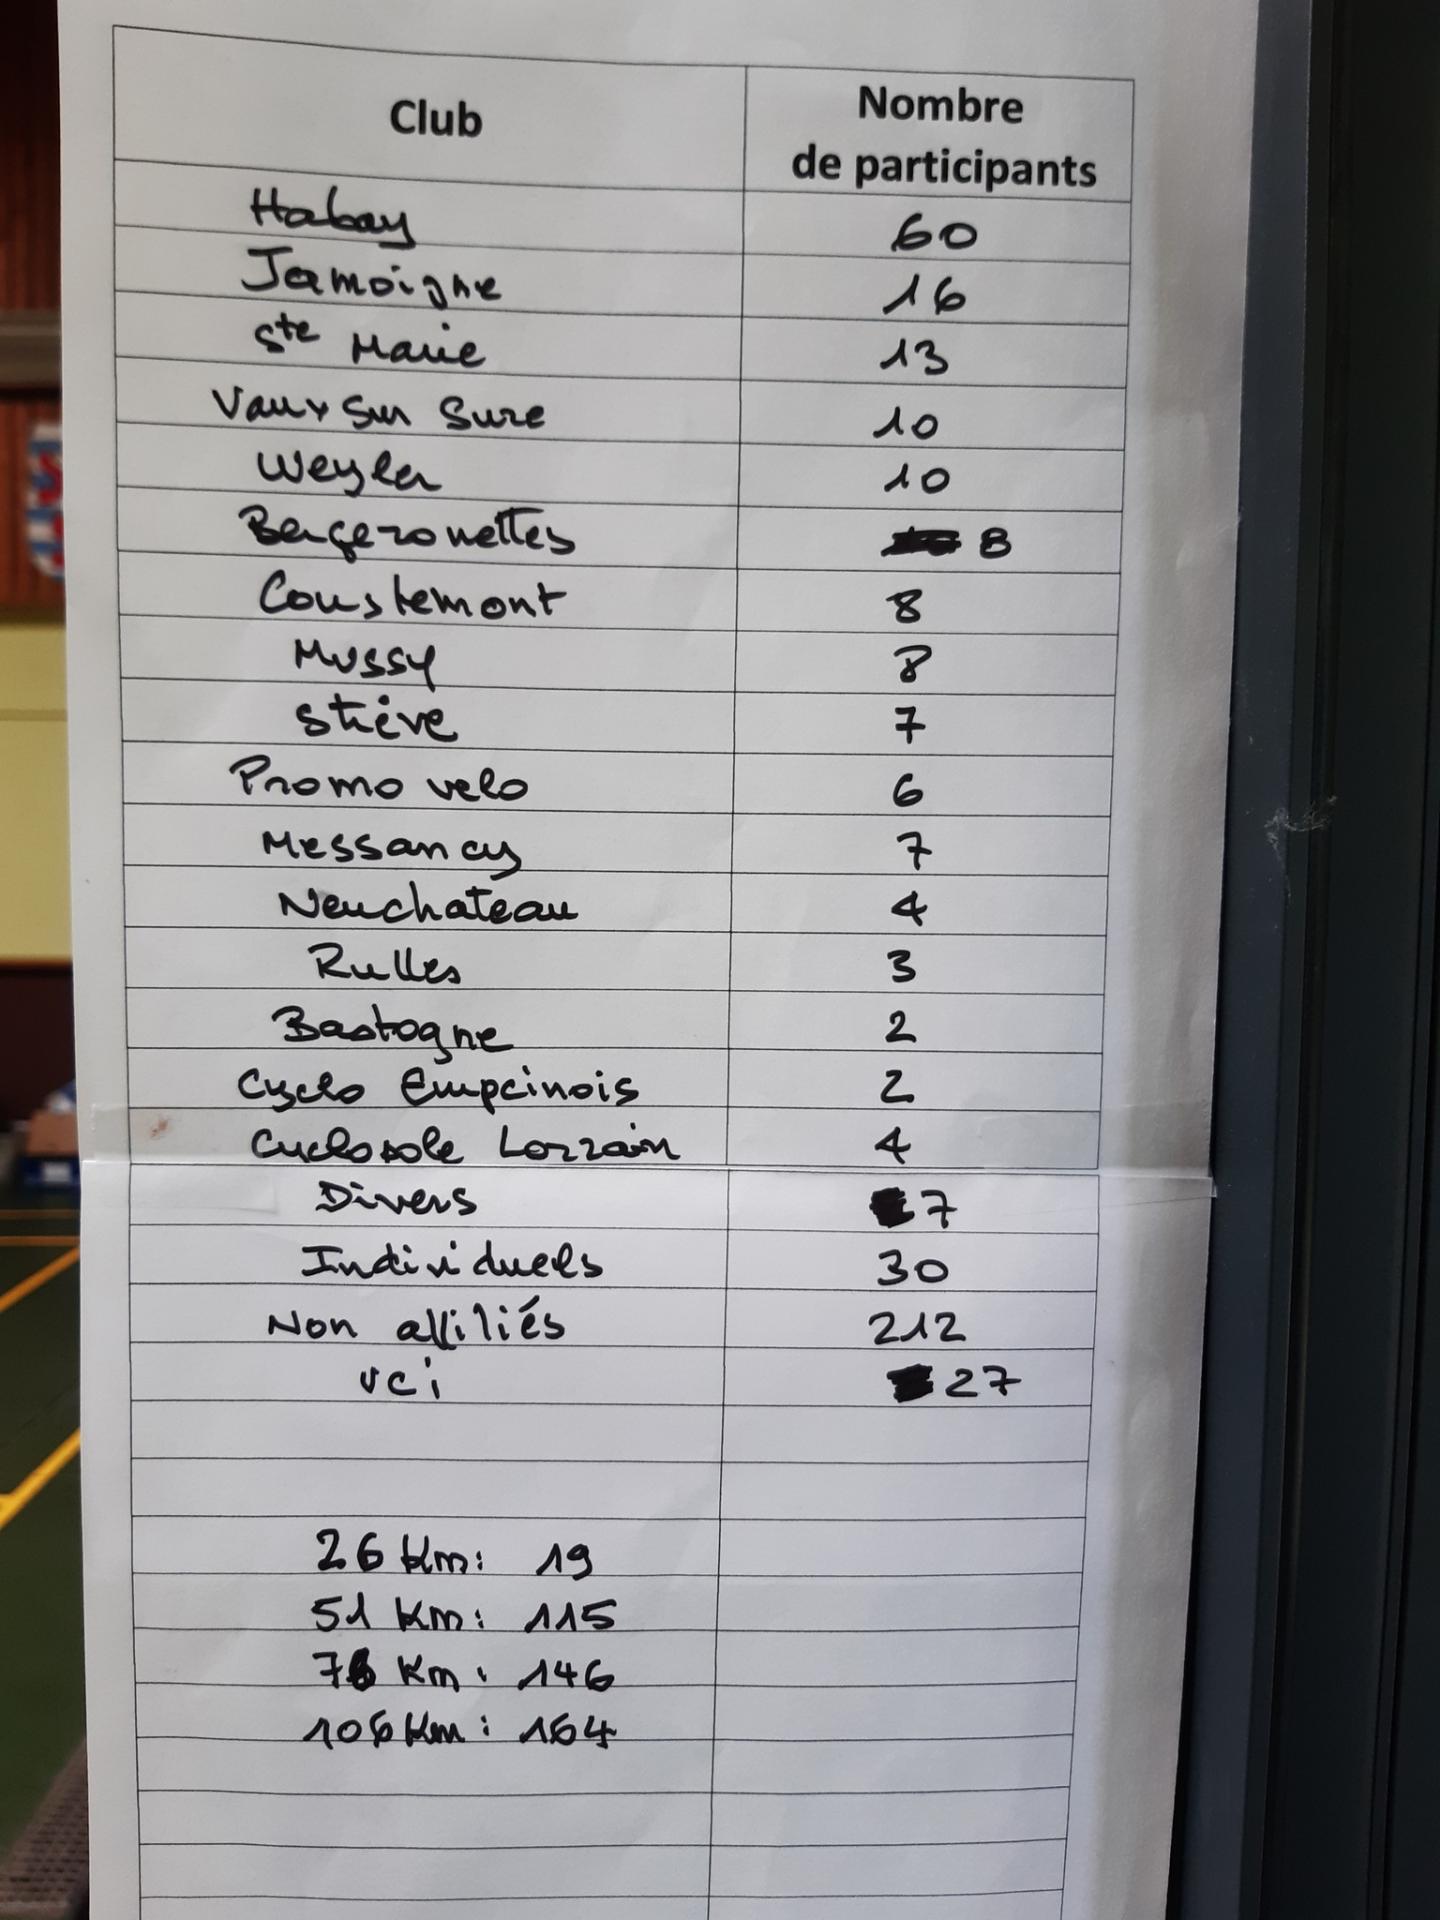 Club Nombre de participants
Habay 60
Jamoigne 16
Ste Marie 13
Vaux sur Sure 10
Weyler 10
Bergeronnettes 8
Coustemont 8
Mussy 8
Stiève 7
Promo velo 6
Messancy 7
Neuchateau 4
Rulles 3
Bastogne 2
Cyclo Empcinois 2
Cyclosole Lorrain 4
Divers 7
Individuels 30
Non affiliés 212
VCi 27
26 Km: 19
51 Km: 115
76 Km: 146
106 Km: 164